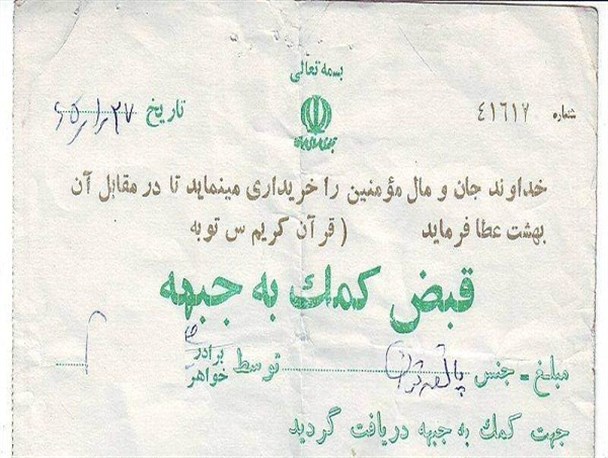 بسمه تعالی
شماره ۴۱۶۱۲
تاریخ ۶۵/۱/۲۷
خداوند جان و مال مؤمنین را خریداری مینماید تا در مقابل آن
بهشت عطا فرماید (قرآن کریم س توبه
قبض کمك به جبهه
مبلغ = جنس پانصد تومان توسط برادر خواهر
جهت کمك به جبهه دریافت گردید